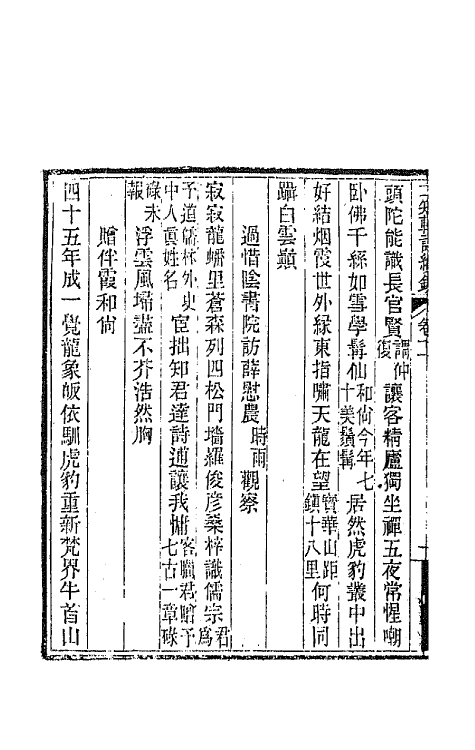 頭陀能識長官賢謂仲復讓客精廬獨坐禪五夜常惺嘲
臥佛千絲如雪學髯仙和尙今年七十美鬚髯居然虎豹叢中出
好結烟霞世外緣東指嘯天龍在望寶華山距鎮十八里何時同
躡白雲巔
過惜陰書院訪薛慰農時雨觀察
寂寂龍蟠里蒼森列四松門墻羅俊彥桑梓識儒宗君爲
予道儒林外史中人眞姓名宦拙知君達詩逋讓我慵客臘君贈予七古一章碌
碌未報浮雲風埽盡不芥浩然胸
贈伴霞和尙
四十五年成一覺龍象皈依馴虎豹重新梵界牛首山